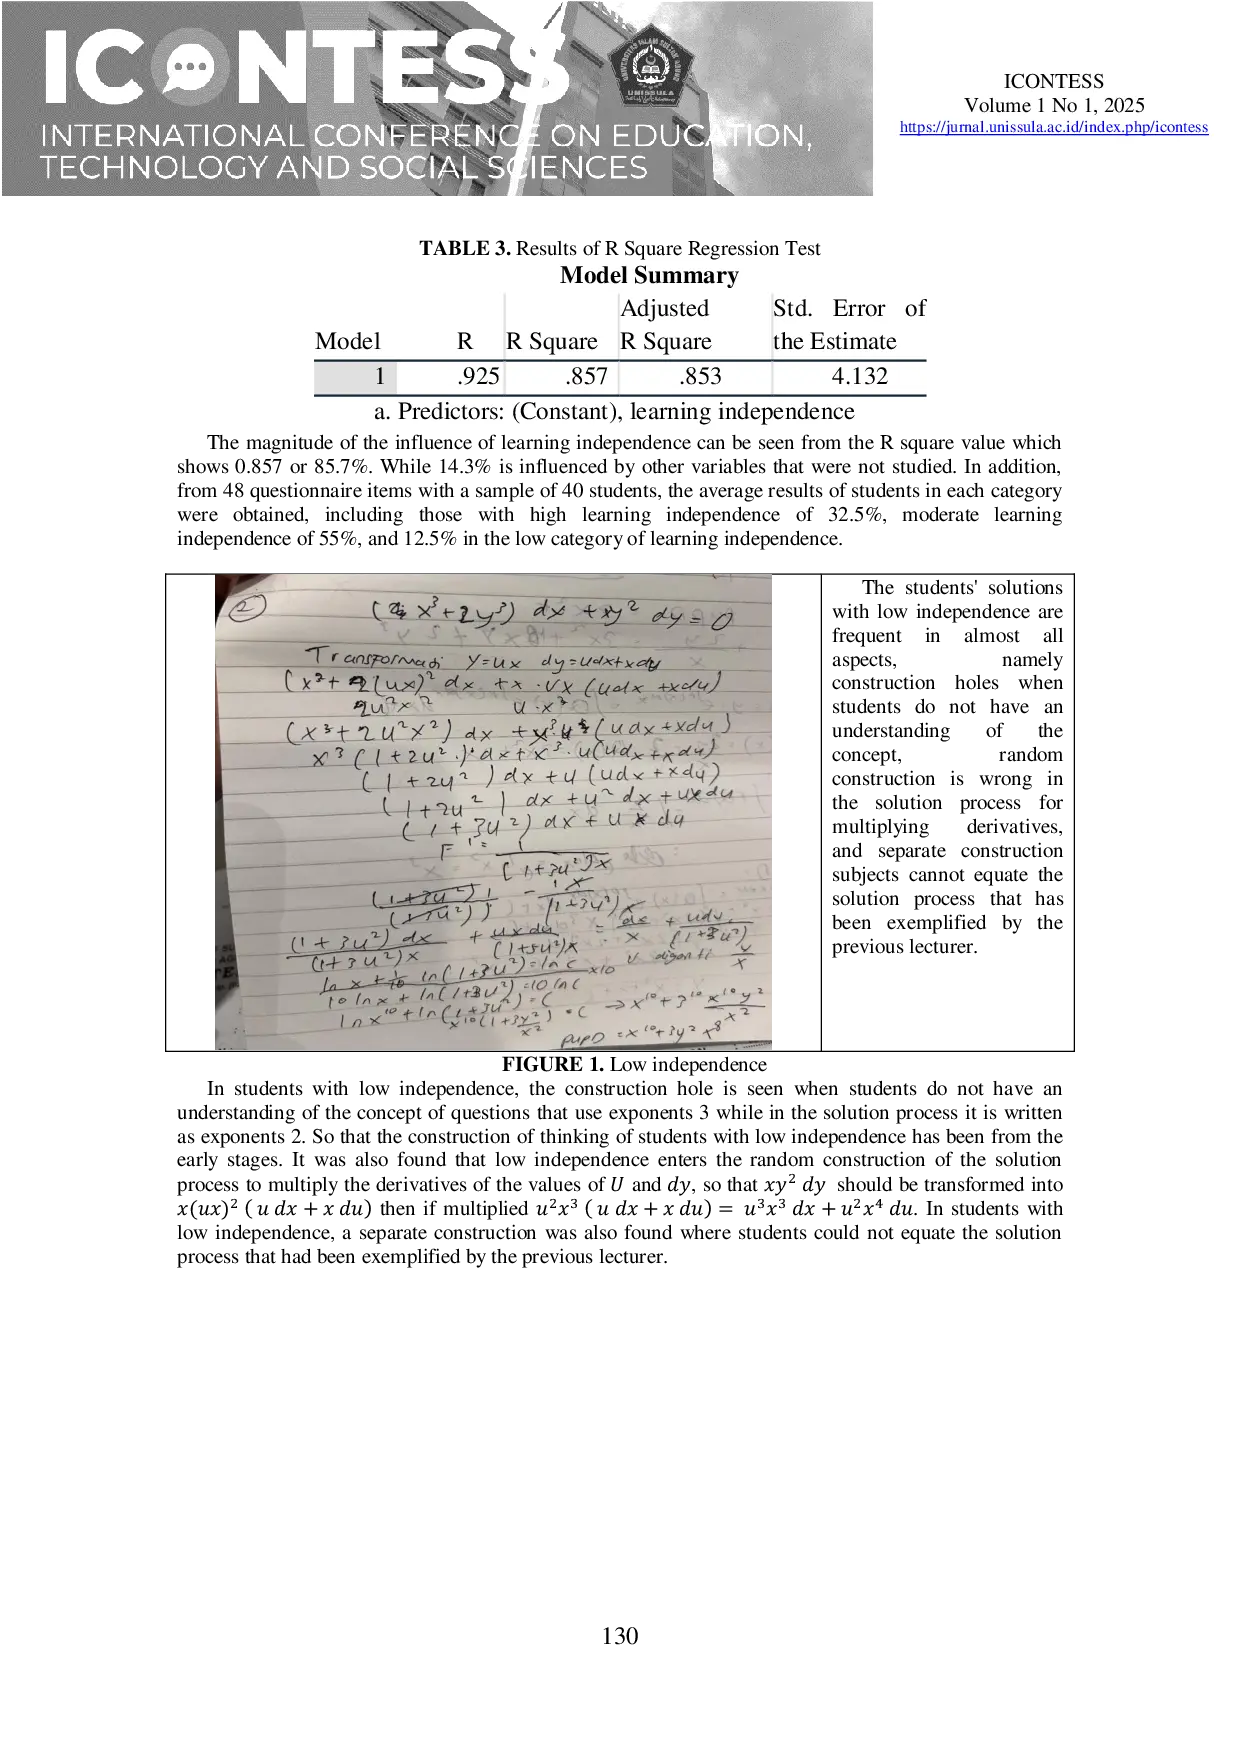 ICONTESS
INTERNATIONAL CONFERENCE ON EDUCATION,
TECHNOLOGY AND SOCIAL SCIENCES
UNISSULA
ICONTESS
Volume 1 No 1, 2025
https://jurnal.unissula.ac.id/index.php/icontess
TABLE 3. Results of R Square Regression Test
Model Summary
Model R R Square Adjusted R Square Std. Error of the Estimate
1 .925 .857 .853 4.132
a. Predictors: (Constant), learning independence
The magnitude of the influence of learning independence can be seen from the R square value which
shows 0.857 or 85.7%. While 14.3% is influenced by other variables that were not studied. In addition,
from 48 questionnaire items with a sample of 40 students, the average results of students in each category
were obtained, including those with high learning independence of 32.5%, moderate learning
independence of 55%, and 12.5% in the low category of learning independence.
2
x³+2y³) dx + xy² dy = 0
Transformasi y=ux dy=udx+xdy
(x³+2(ux)² dx + x · ux (udx +xdu)
2u²x² u·x³
(x³+2u²x²) dx + (udx+xdu)
x³(1+2u²) dx + x³·u(udx+xdu)
(1+2u²) dx + u (udx+xdu)
(1+2u²) dx + u² dx + ux du
(1+3u²) dx + u x du
F = 1
(1+3u²)x
(1+3u²) dx + ux du = dx + udu
(1+3u²)x (1+3u²)x x (1+3u²)
ln x + 1/10 ln(1+3u²) = ln c x10 u diganti y/x
10 ln x + ln(1+3u²) = 10 ln c
ln x¹⁰ + ln(1+3u²) = C
x¹⁰(1+3y²/x²) = C → x¹⁰+3¹⁰ x¹⁰y²/x²
PUPD = x¹⁰+3y² x⁸
The students' solutions
with low independence are
frequent in almost all
aspects, namely
construction holes when
students do not have an
understanding of the
concept, random
construction is wrong in
the solution process for
multiplying derivatives,
and separate construction
subjects cannot equate the
solution process that has
been exemplified by the
previous lecturer.
FIGURE 1. Low independence
In students with low independence, the construction hole is seen when students do not have an
understanding of the concept of questions that use exponents 3 while in the solution process it is written
as exponents 2. So that the construction of thinking of students with low independence has been from the
early stages. It was also found that low independence enters the random construction of the solution
process to multiply the derivatives of the values of U and dy, so that xy² dy should be transformed into
x(ux)² ( u dx + x du) then if multiplied u²x³ ( u dx + x du) = u³x³ dx + u²x⁴ du. In students with
low independence, a separate construction was also found where students could not equate the solution
process that had been exemplified by the previous lecturer.
130